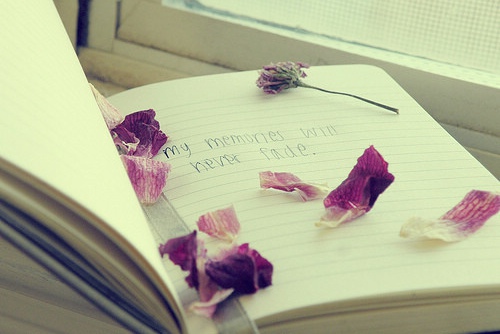 my memories will
never fade.